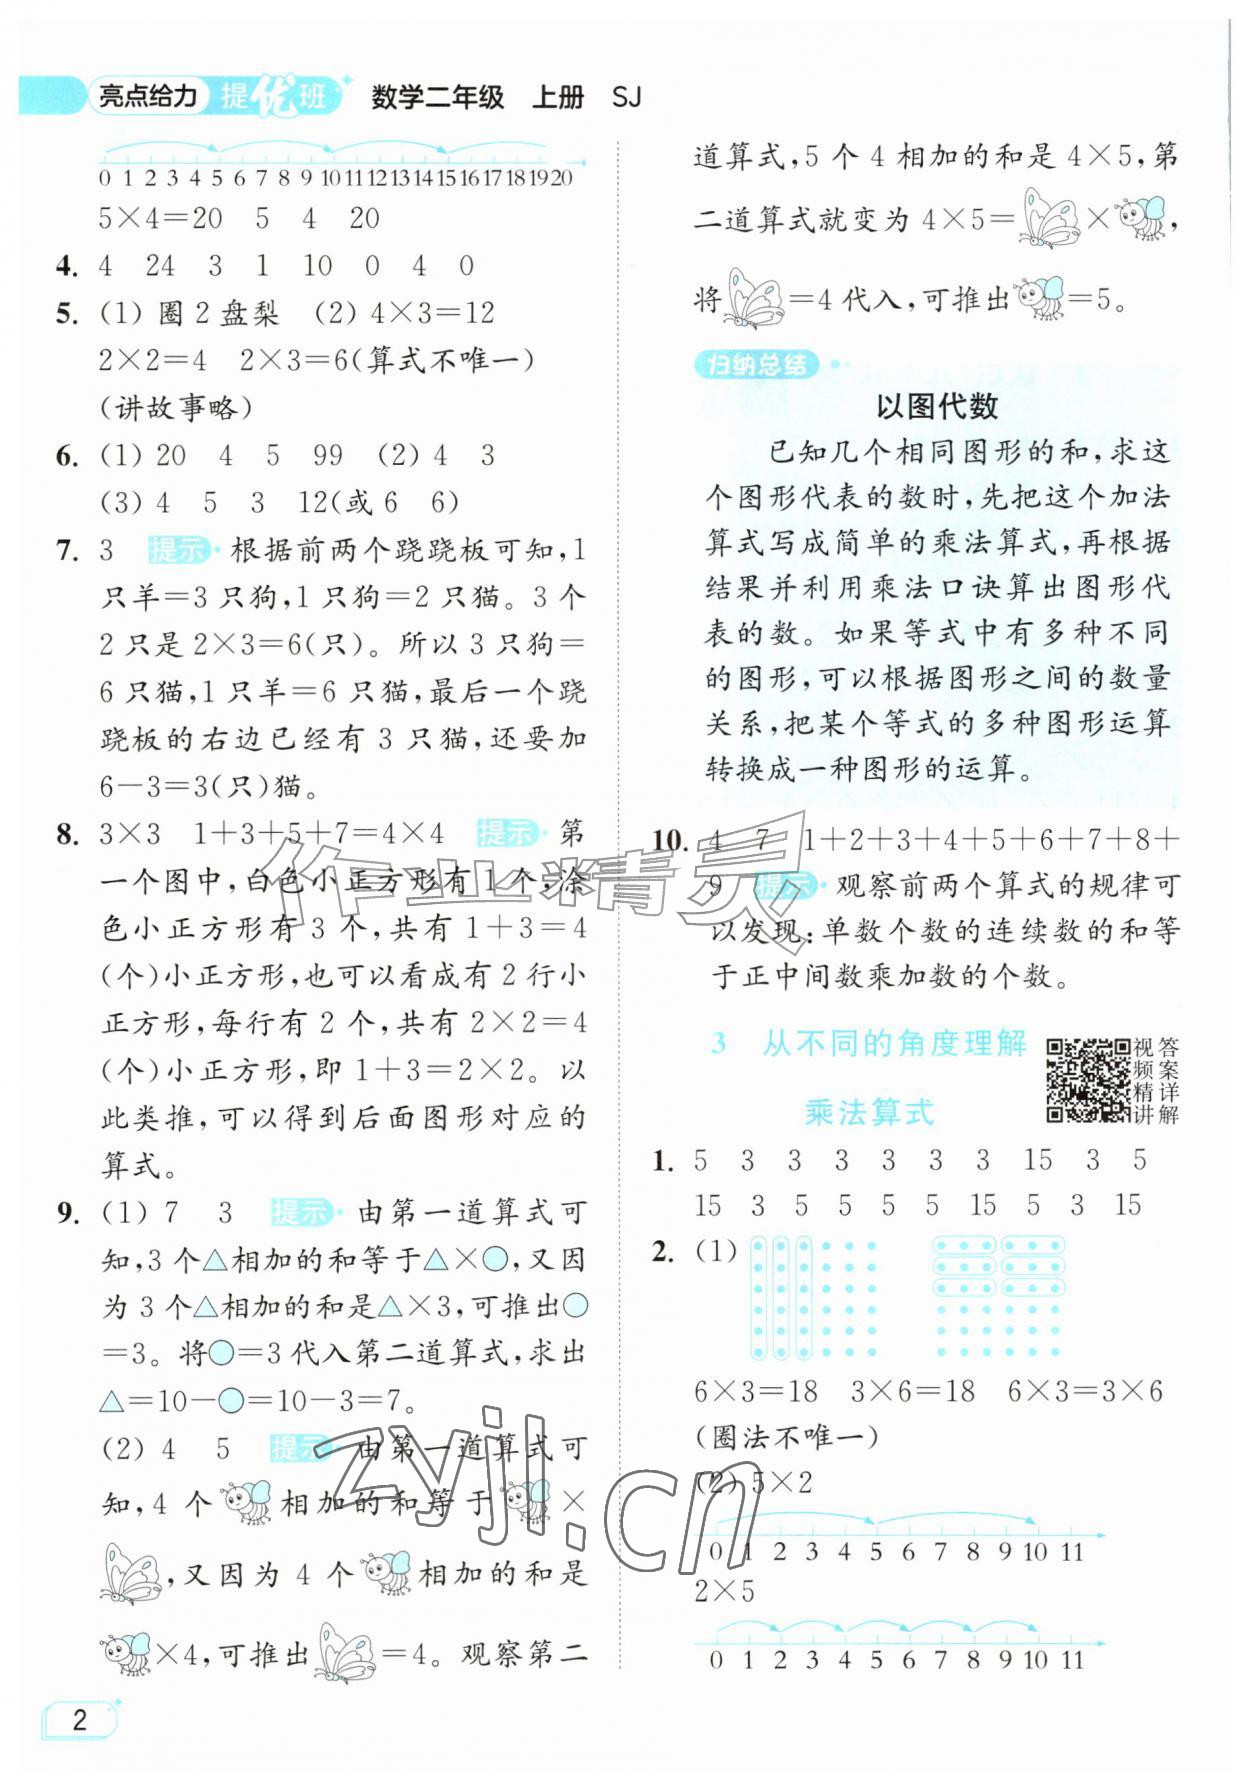 亮点给力 提优班 数学二年级 上册 SJ
0 1 2 3 4 5 6 7 8 9 10 11 12 13 14 15 16 17 18 19 20
5×4=20 5 4 20
4. 4 24 3 1 10 0 4 0
5. (1) 圈2盘梨 (2) 4×3=12
2×2=4 2×3=6(算式不唯一)
(讲故事略)
6. (1) 20 4 5 99 (2) 4 3
(3) 4 5 3 12(或6 6)
7. 3 提示 根据前两个跷跷板可知,1
只羊=3只狗,1只狗=2只猫。3个
2只是2×3=6(只)。所以3只狗=
6只猫,1只羊=6只猫,最后一个跷
跷板的右边已经有3只猫,还要加
6-3=3(只)猫。
8. 3×3 1+3+5+7=4×4 提示 第
一个图中,白色小正方形有1个,涂
色小正方形有3个,共有1+3=4
(个)小正方形,也可以看成有2行小
正方形,每行有2个,共有2×2=4
(个)小正方形,即1+3=2×2。以
此类推,可以得到后面图形对应的
算式。
9. (1) 7 3 提示 由第一道算式可
知,3个△相加的和等于△×○,又因
为3个△相加的和是△×3,可推出○
=3。将○=3代入第二道算式,求出
△=10-○=10-3=7。
(2) 4 5 提示 由第一道算式可
知,4个 相加的和等于 ×
,又因为4个 相加的和是
×4,可推出 =4。观察第二
2
道算式,5个4相加的和是4×5,第
二道算式就变为4×5= × ,
将 =4代入,可推出 =5。
归纳总结
以图代数
已知几个相同图形的和,求这
个图形代表的数时,先把这个加法
算式写成简单的乘法算式,再根据
结果并利用乘法口诀算出图形代
表的数。如果等式中有多种不同
的图形,可以根据图形之间的数量
关系,把某个等式的多种图形运算
转换成一种图形的运算。
10. 4 7 1+2+3+4+5+6+7+8+
9 提示 观察前两个算式的规律可
以发现:单数个数的连续数的和等
于正中间数乘加数的个数。
3 从不同的角度理解
乘法算式
视频精讲
答案详解
1. 5 3 3 3 3 3 3 15 3 5
15 3 5 5 5 5 15 5 3 15
2. (1)
6×3=18 3×6=18 6×3=3×6
(圈法不唯一)
(2) 5×2
0 1 2 3 4 5 6 7 8 9 10 11
2×5
0 1 2 3 4 5 6 7 8 9 10 11
作业精灵
zyjl.cn